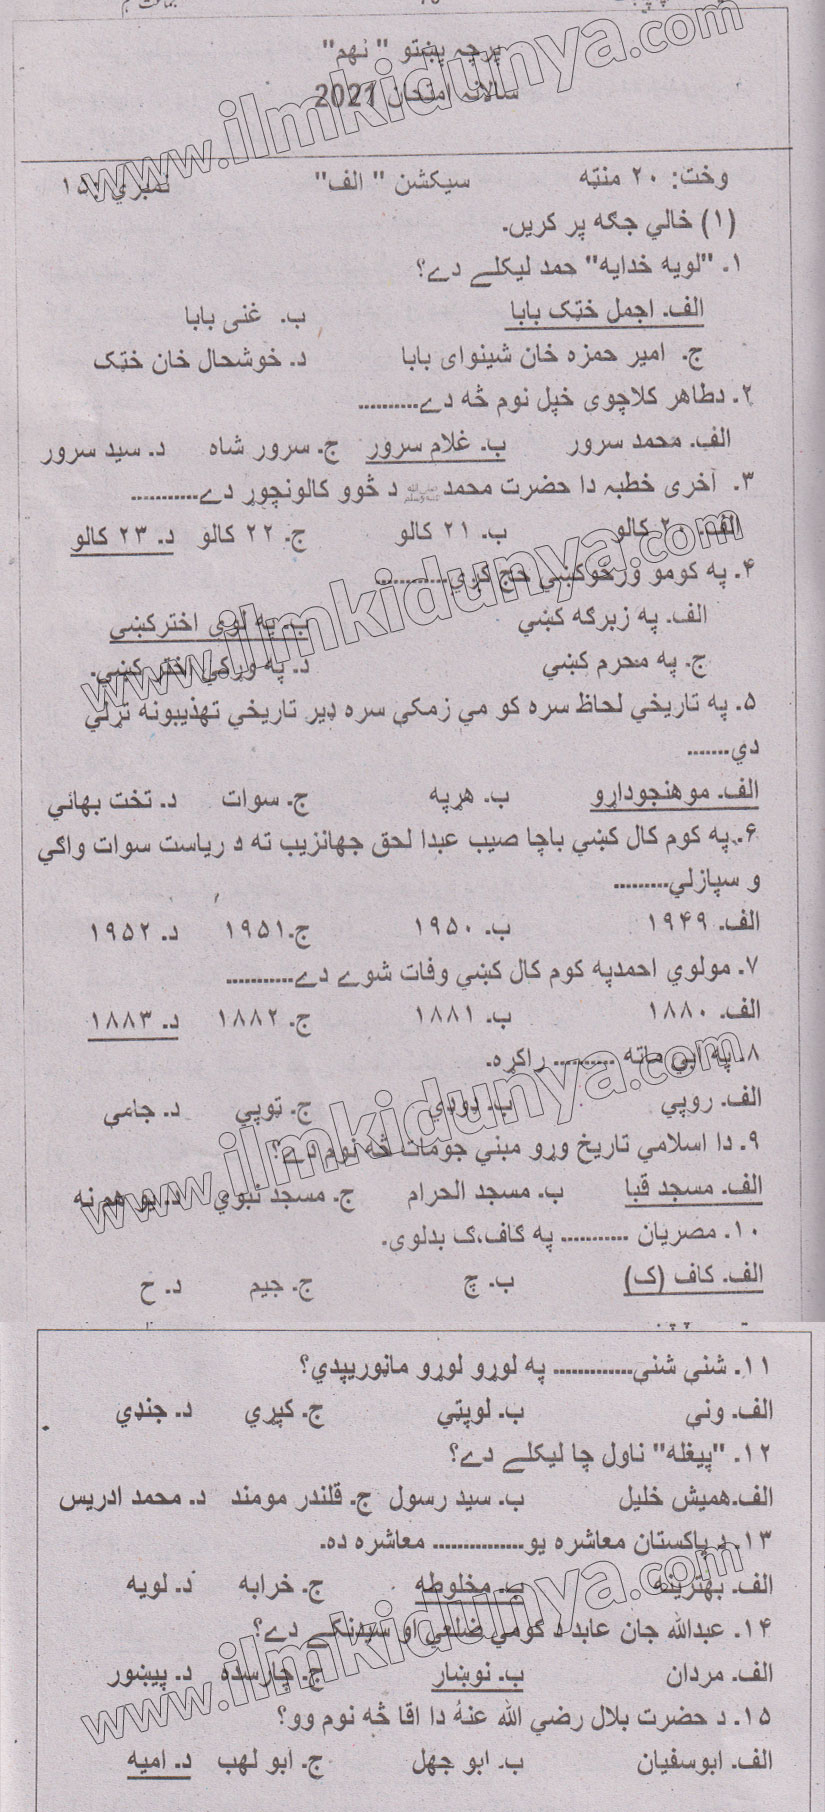 پرچہ پښتو " نهم"
سالانہ امتحان 2021
وخت: ۲۰ منټه سیکشن " الف" نمبري :۱۵
(۱) خالي جګه پر کریں.
۱. "لویه خدایه" حمد لیکلے دے؟
الف. اجمل خټک بابا ب. غنی بابا
ج. امیر حمزه خان شینوای بابا د. خوشحال خان خټک
۲. دطاهر کلاچوی خپل نوم څه دے..........
الف. محمد سرور ب. غلام سرور ج. سرور شاه د. سید سرور
۳. آخری خطبہ دا حضرت محمد ﷺ د څوو کالونچوړ دے...........
الف. ۲۰ کالو ب. ۲۱ کالو ج. ۲۲ کالو د. ۲۳ کالو
۴. په کومو ورځوکښي حج کږي............
الف. په زبرګه کښي ب. په لوی اخترکښي
ج. په محرم کښي د. په وړکي اختر کښي.
۵. په تاریخي لحاظ سره کو مي زمکي سره ډیر تاریخي تهذیبونه تړلي
دي.......
الف. موهنجوداړو ب. هړپه ج. سوات د. تخت بهائي
۶. په کوم کال کښي باچا صیب عبدا لحق جهانزیب ته د ریاست سوات واګي
و سپازلي.........
الف. ۱۹۴۹ ب. ۱۹۵۰ ج.۱۹۵۱ د. ۱۹۵۲
۷. مولوي احمدپه کوم کال کښي وفات شوے دے...........
الف. ۱۸۸۰ ب. ۱۸۸۱ ج. ۱۸۸۲ د. ۱۸۸۳
۸. په ابي ماته .......... راکړه.
الف. روپي ب. ډوډي ج. ټوپي د. جامي
۹. دا اسلامي تاریخ وړو مبني جومات څه نوم دے؟
الف. مسجد قبا ب. مسجد الحرام ج. مسجد نبوي د. یو هم نه
۱۰. مصریان ........... په ګاف،ګ بدلوی.
الف. کاف (ک) ب. چ ج. جیم د. ح
۱۱. شني شني............. په لوړو لوړو ماڼوریپدي؟
الف. وني ب. لوپټي ج. کپړي د. جنډي
۱۲. "پیغله" ناول چا لیکلے دے؟
الف.همیش خلیل ب. سید رسول ج. قلندر مومند د. محمد ادریس
۱۳. د پاکستان معاشره یو............... معاشره ده.
الف. بهترینه ب. مخلوطه ج. خرابه د. لویه
۱۴. عبدالله جان عابد د کومي ضلعي او سیدنکے دے؟
الف. مردان ب. نوښار ج. چارسده د. پیښور
۱۵. د حضرت بلال رضي الله عنهٔ دا اقا څه نوم وو؟
الف. ابوسفیان ب. ابو جهل ج. ابو لهب د. امیه
www.ilmkidunya.com
www.ilmkidunya.com
www.ilmkidunya.com
www.ilmkidunya.com